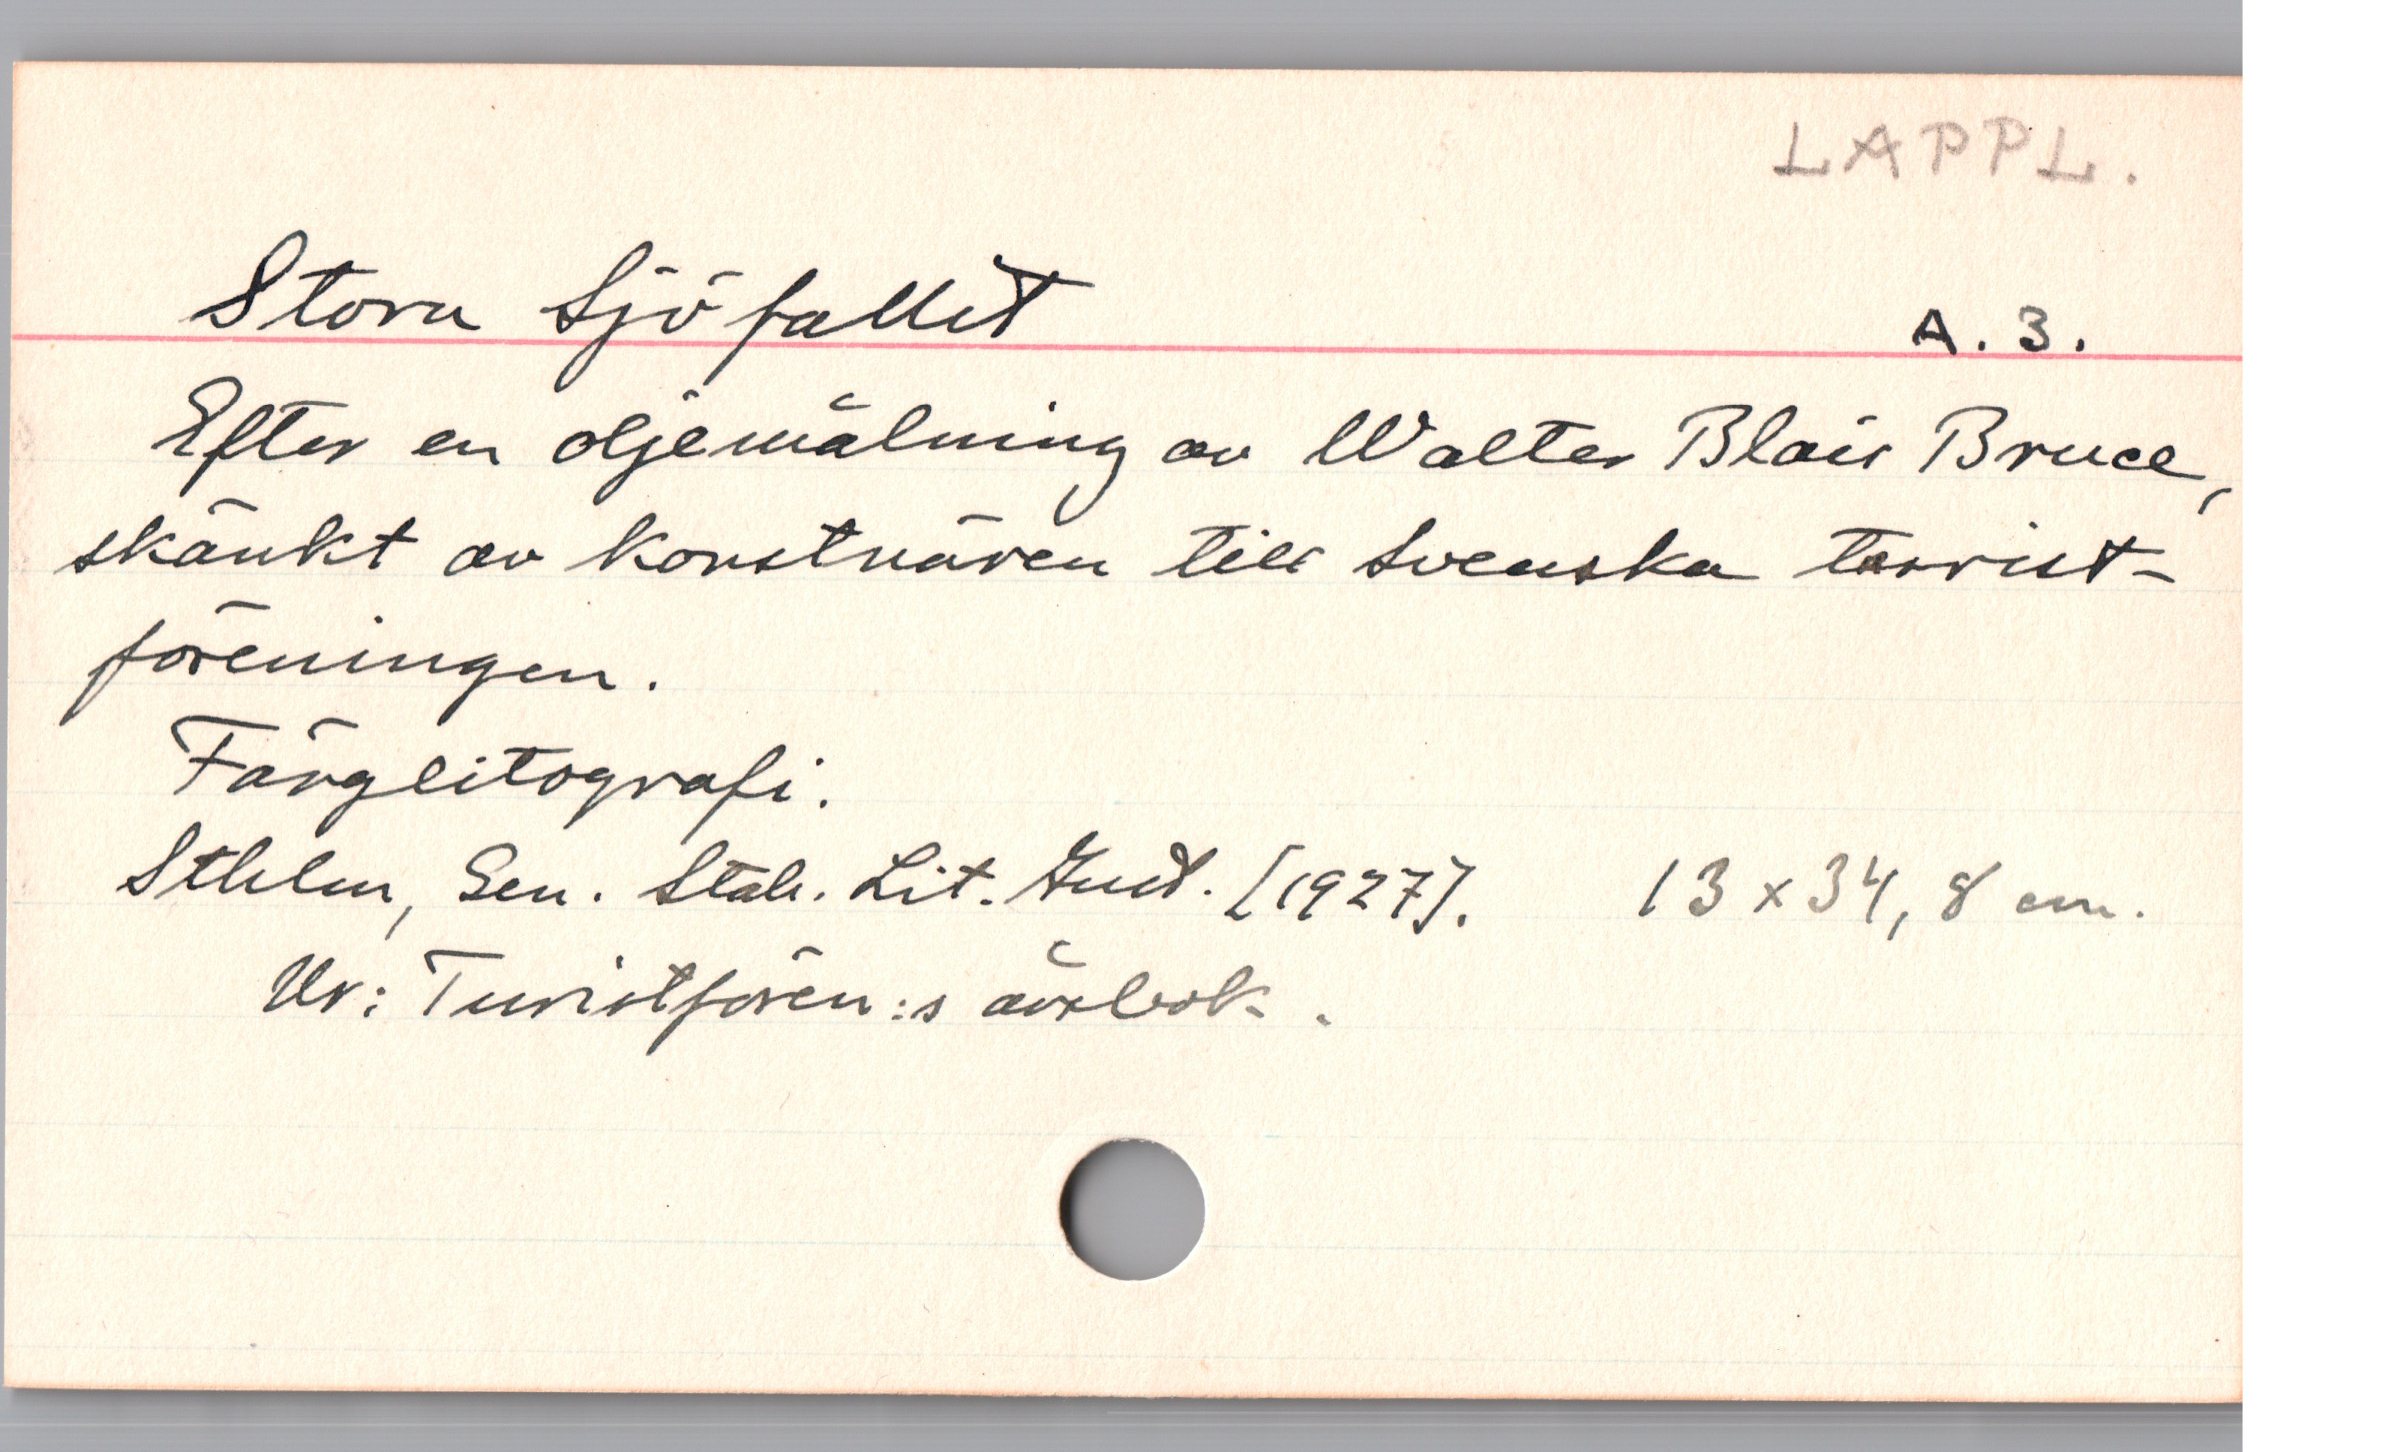 LAPPL.
Stora Sjöfallet A. 3.
Efter en oljemålning av Walter Blair Bruce,
skänkt av konstnären till Svenska turist-
föreningen.
Färglitografi.
Sthlm, Gen. Stab. Lit. Anst. [1927]. 13 x 34,8 cm.
Ur: Turistfören:s årsbok.